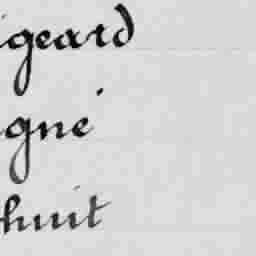 igeard
igné
huit